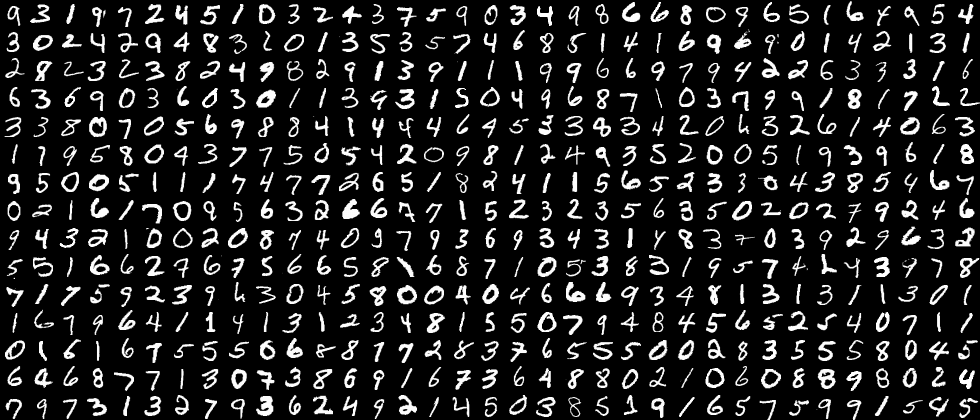 9 3 1 9 7 2 4 5 1 0 3 2 4 3 7 5 9 0 3 4 9 8 6 6 8 0 9 6 5 1 6 4 9 5 4
3 0 2 4 2 9 4 8 3 2 0 1 3 5 3 5 7 4 6 8 5 1 4 1 6 9 6 9 0 1 4 2 1 3 1
2 8 2 3 2 3 8 2 4 9 8 2 9 1 3 9 1 1 1 9 9 6 6 9 7 9 4 2 2 6 3 3 3 1 6
6 3 6 9 0 3 6 0 3 0 1 1 3 9 3 1 5 0 4 9 6 8 7 1 0 3 7 9 9 1 8 1 7 2 2
3 3 8 0 7 0 5 6 9 8 8 4 1 4 4 4 6 4 5 3 3 8 3 4 2 0 6 3 2 6 1 4 0 6 3
1 7 9 5 8 0 4 3 7 7 5 0 5 4 2 0 9 8 1 2 4 9 3 5 2 0 0 5 1 9 3 9 6 1 8
9 5 0 0 5 1 1 1 7 4 7 7 2 6 5 1 8 2 4 1 1 5 6 5 2 3 3 0 4 3 8 5 4 6 7
0 2 1 6 1 7 0 9 5 6 3 2 6 6 7 7 1 5 2 3 2 3 5 6 3 5 0 2 0 2 7 9 2 4 6
9 4 3 2 1 0 0 2 0 8 7 4 0 9 7 9 3 6 9 3 4 3 1 4 8 3 7 0 3 9 2 9 6 3 2
5 5 1 6 6 2 7 6 7 5 6 6 5 8 1 6 8 7 1 0 5 3 8 3 1 9 5 7 4 6 4 3 9 7 8
7 1 7 5 9 2 3 9 6 3 0 4 5 8 0 0 4 0 4 6 6 6 9 3 4 8 1 3 1 3 1 1 3 0 1
1 6 7 9 6 4 1 1 4 1 3 1 2 3 4 8 1 5 5 0 7 9 4 8 4 5 6 5 2 5 4 0 7 1 1
0 1 6 1 6 7 5 5 5 0 6 8 8 7 7 2 8 3 7 6 5 5 5 0 0 2 8 3 5 5 5 8 0 4 5
6 4 6 8 7 7 1 3 0 7 3 8 6 9 1 6 7 3 6 4 8 8 0 2 1 0 6 0 8 8 9 8 0 2 4
7 9 7 3 1 3 2 7 9 3 6 2 4 9 2 1 4 5 0 3 8 5 1 9 1 6 5 7 5 9 9 1 5 4 5